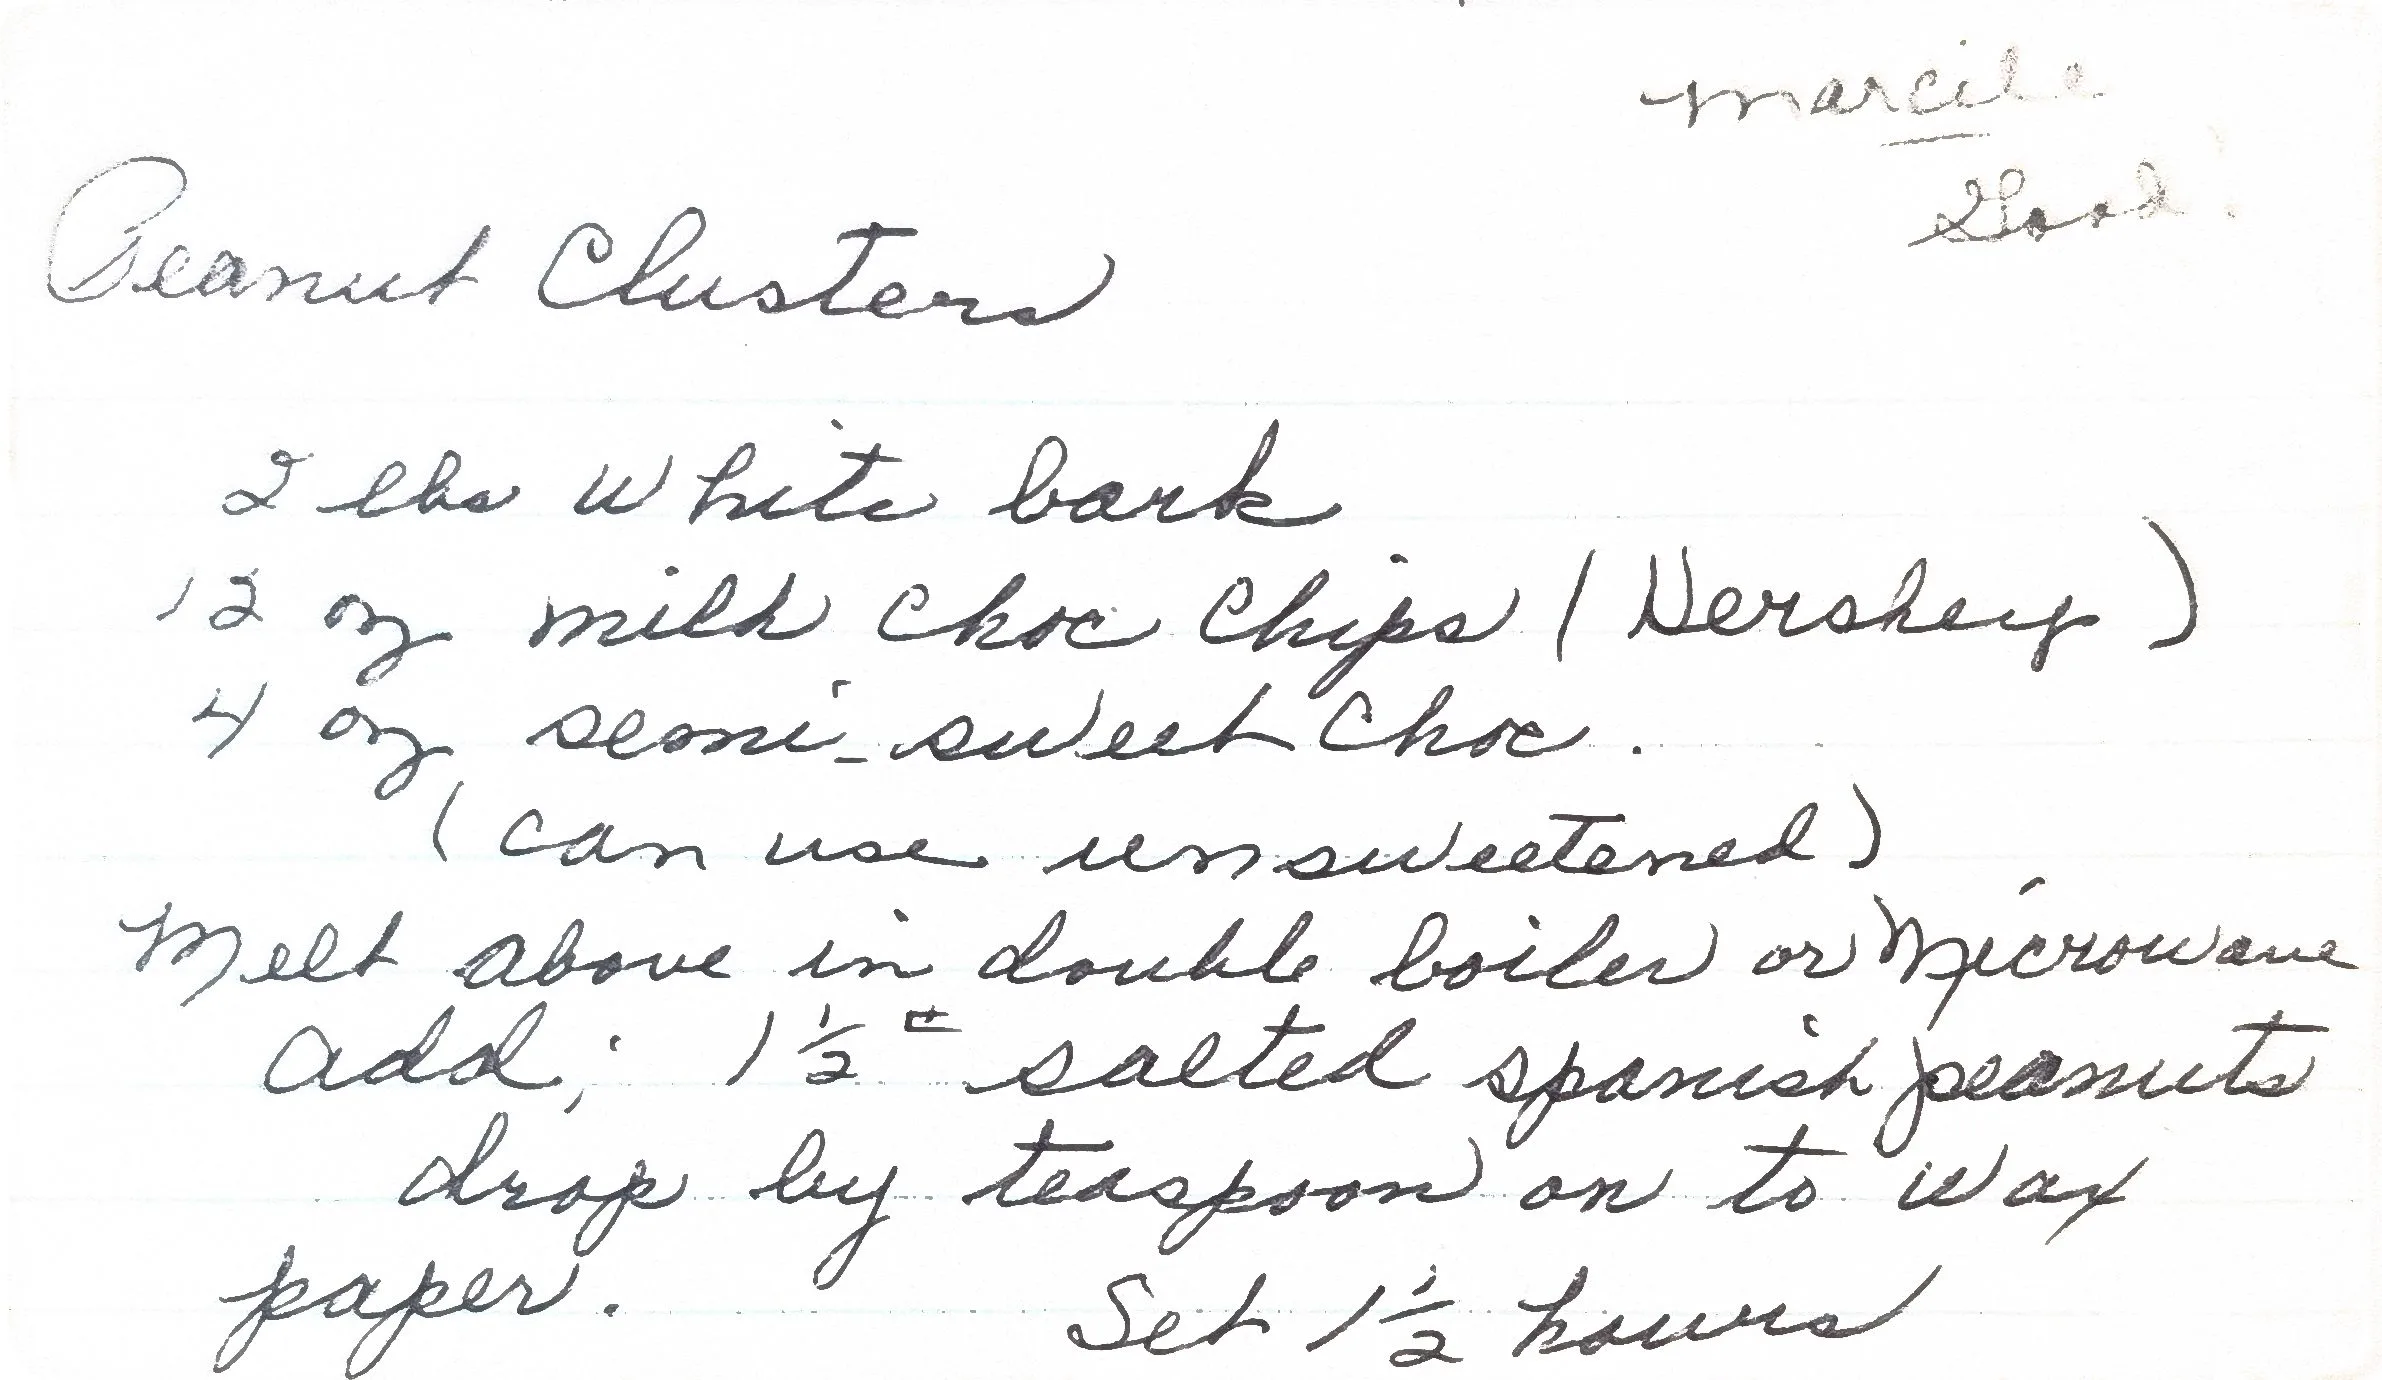 Marcile
Good.
Peanut Clusters
2 lbs White bark
12 oz milk choc chips (Hershey)
4 oz semi-sweet choc.
(can use unsweetened)
Melt above in double boiler or Microwave
add; 1 1/2 # salted spanish peanuts
drop by teaspoon on to wax
paper. Set 1 1/2 hours